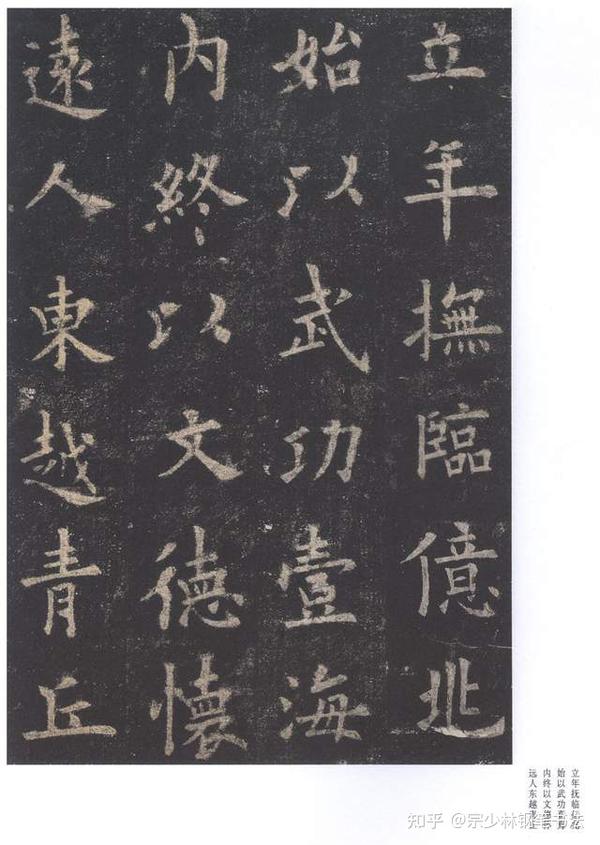 立年撫臨億兆
始以武功壹海
内終以文德懷
遠人東越青丘
立年抚临
始以武功
内终以文
远人东越
知乎 @宗少林钢笔书法